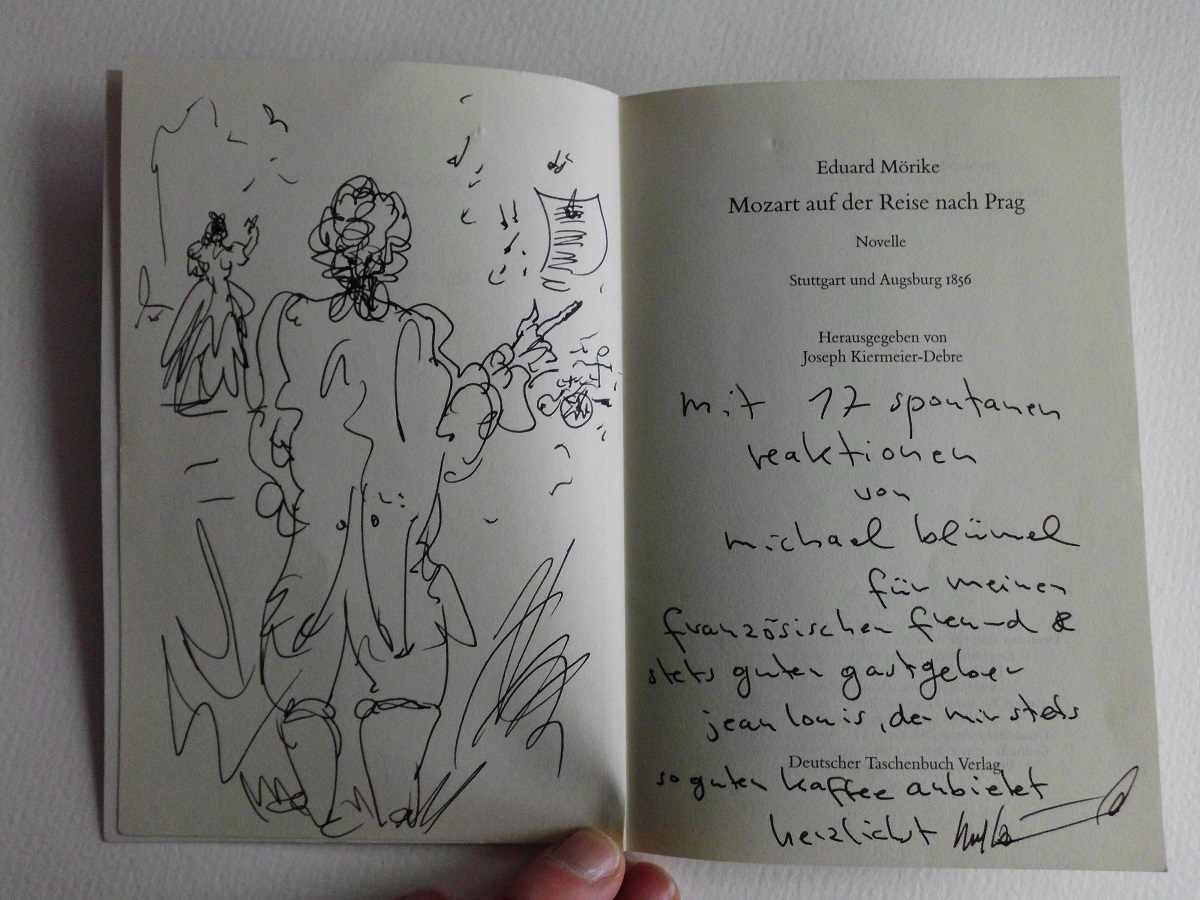 Eduard Mörike
Mozart auf der Reise nach Prag
Novelle
Stuttgart und Augsburg 1856
Herausgegeben von
Joseph Kiermeier-Debre
mit 17 spontanen
reaktionen
von
michael blümel
für meinen
französischen freund &
stets guten gastgeber
jean louis, der mir stets
Deutscher Taschenbuch Verlag
so guten kaffee anbietet
herzlichst